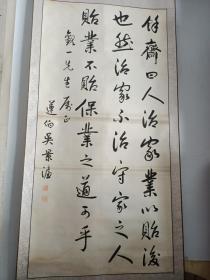 餘齋曰人治家業以貽後
也然治家不治守家之人
貽業不貽保業之道可乎
先生屬正
蓮伯吳景濂